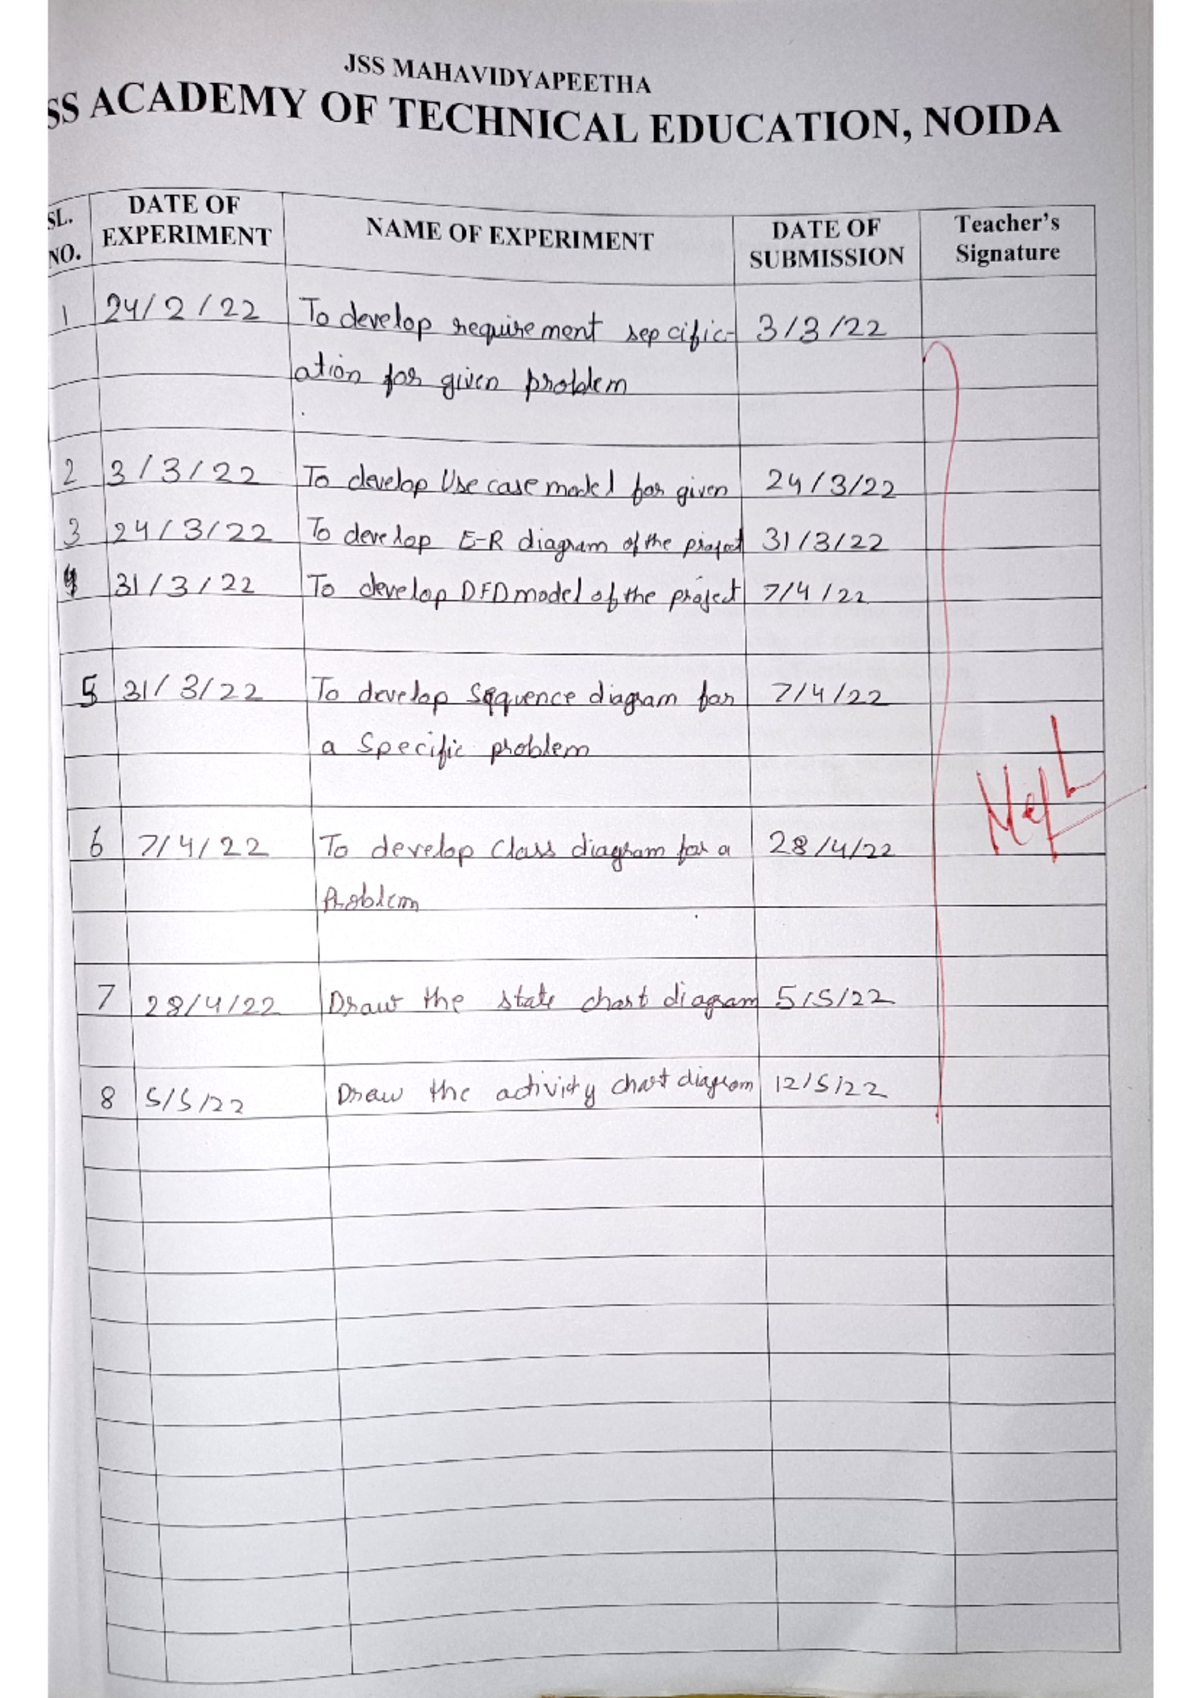 JSS MAHAVIDYAPEETHA
SS ACADEMY OF TECHNICAL EDUCATION, NOIDA
SL. NO. DATE OF EXPERIMENT NAME OF EXPERIMENT DATE OF SUBMISSION Teacher's Signature
1 24/2/22 To develop requirement sepcific- 3/3/22
ation for given problem
2 3/3/22 To develop Use case model for given 24/3/22
3 24/3/22 To develop E-R diagram of the project 31/3/22
4 31/3/22 To develop DFD model of the project 7/4/22
5 31/3/22 To develop Sequence diagram for 7/4/22
a Specific problem
6 7/4/22 To develop Class diagram for a 28/4/22
Problem
7 28/4/22 Draw the state chart diagram 5/5/22
8 5/5/22 Draw the activity chart diagram 12/5/22